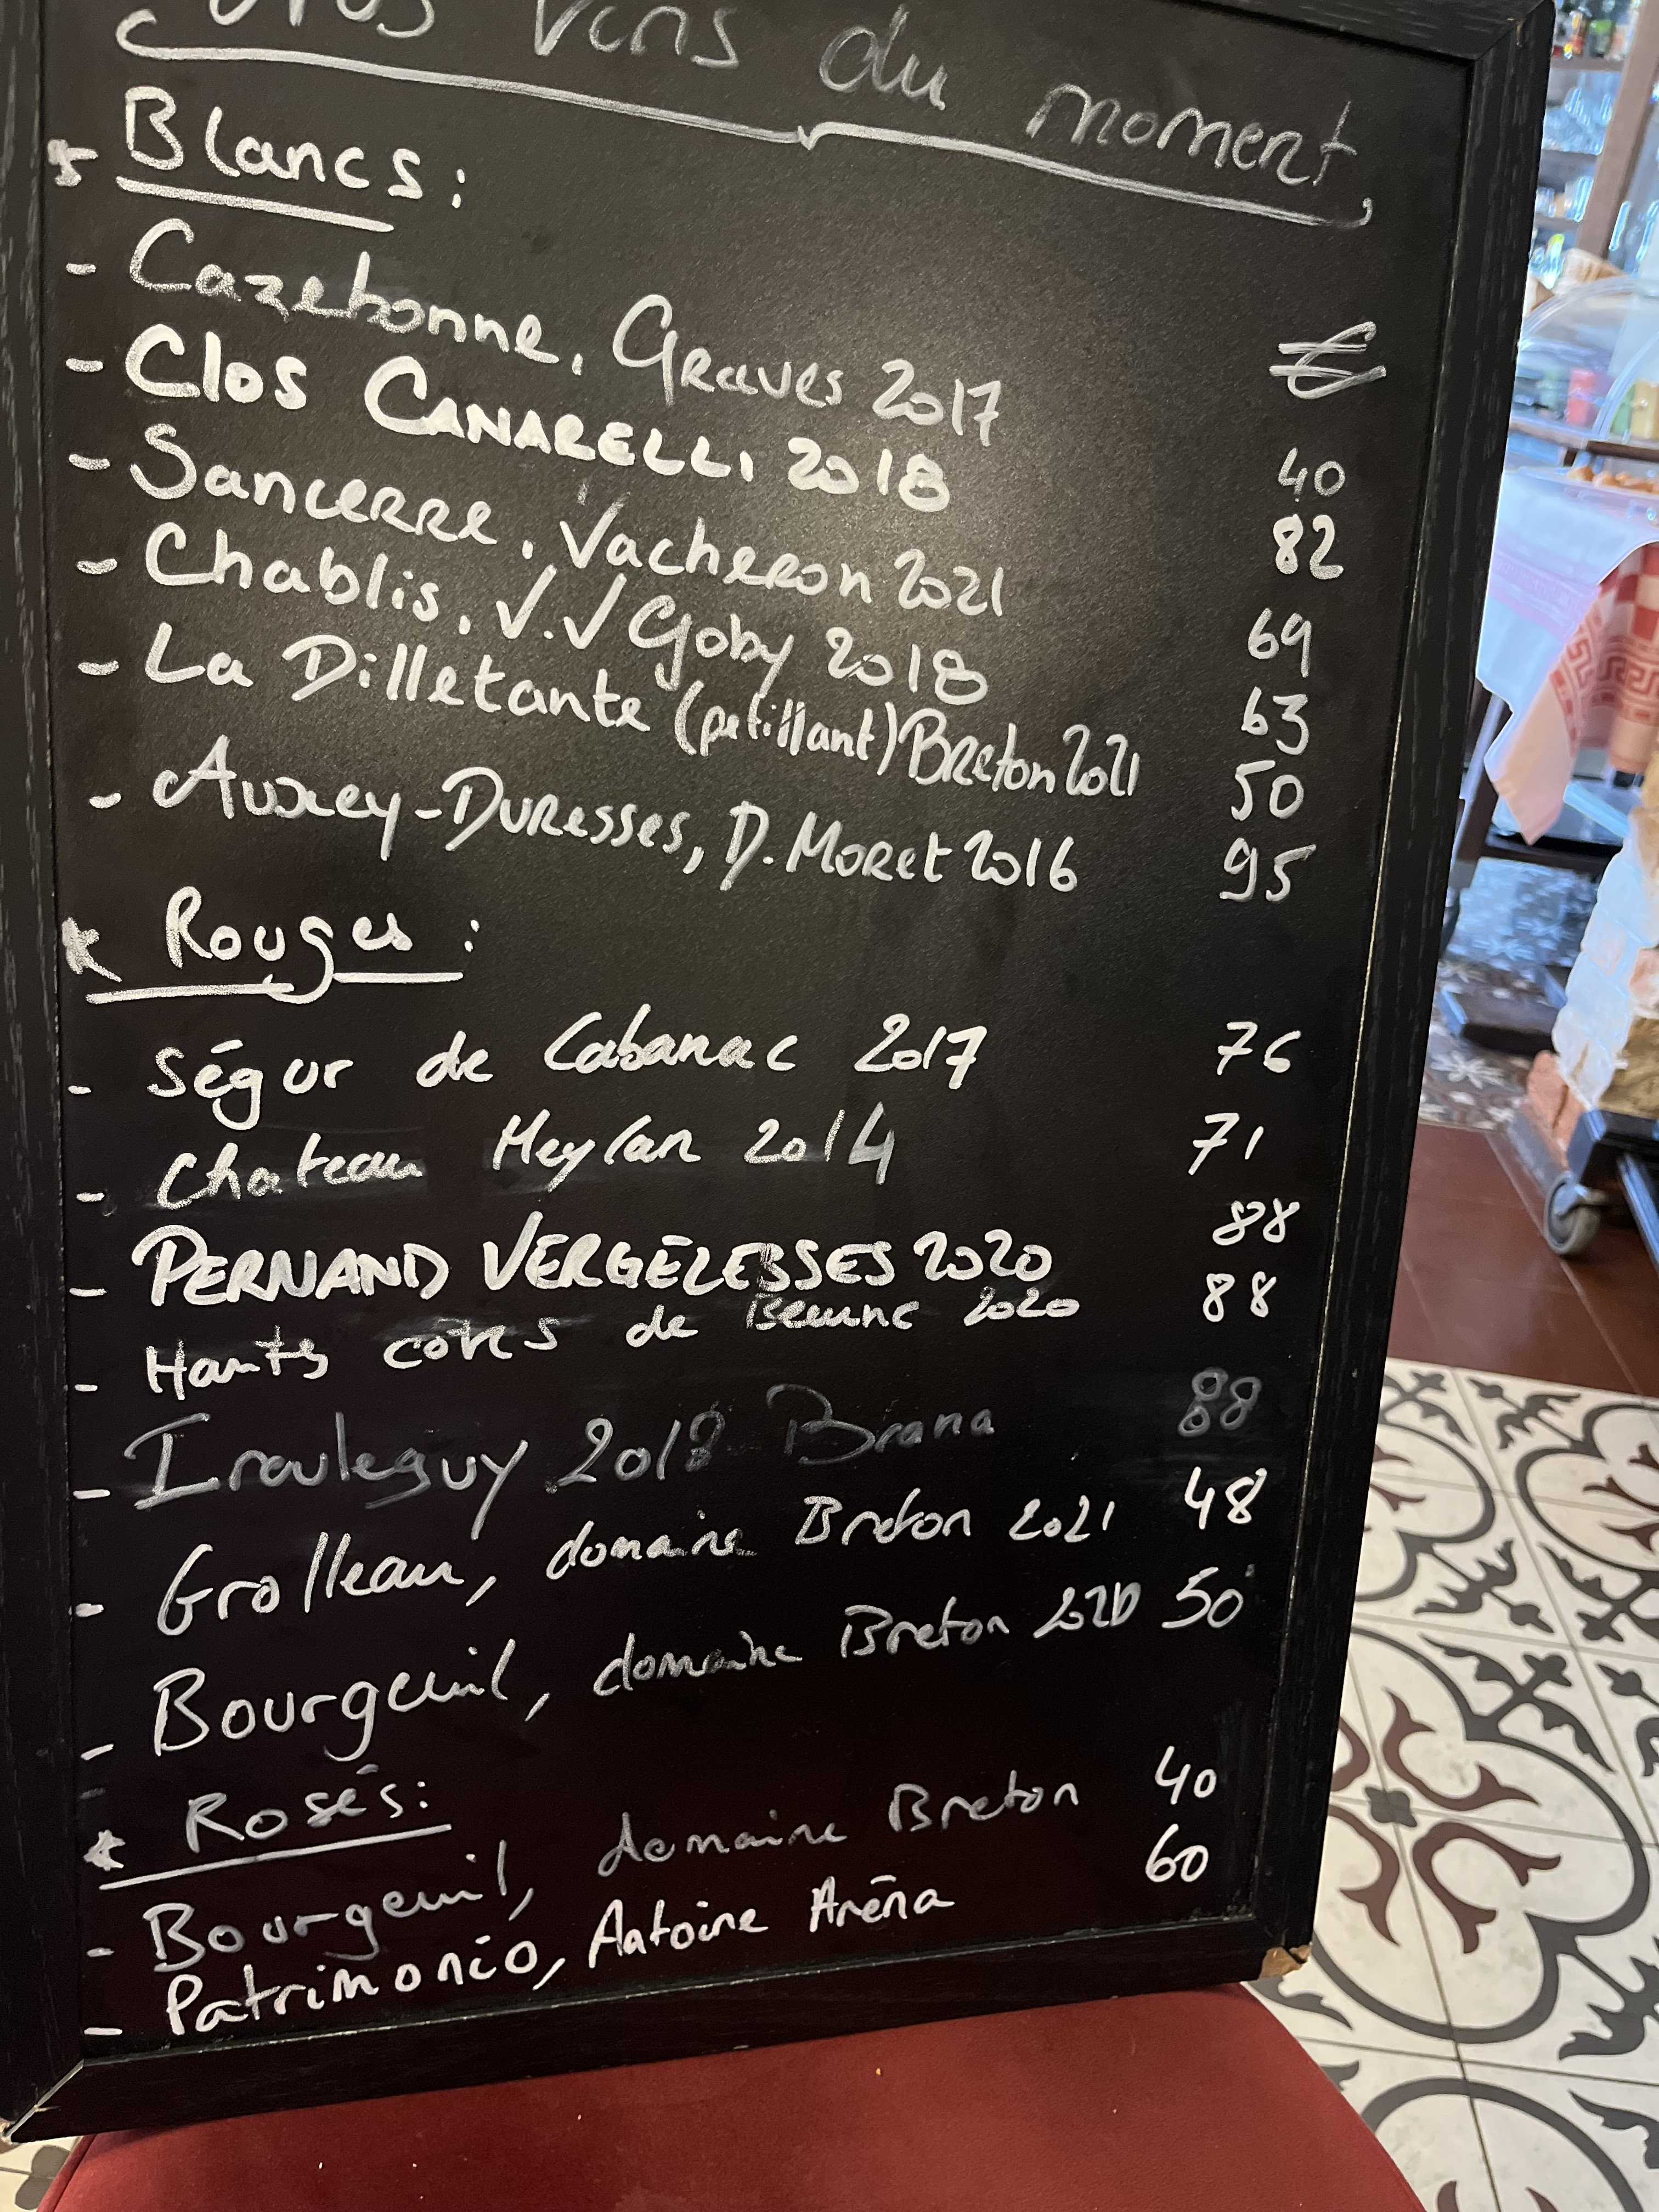 Nos Vins du moment
* Blancs :
€
- Cazebonne, Graves 2017 40
- Clos CANARELLI 2018 82
- Sancerre, Vacheron 2021 69
- Chablis, V.V Goby 2018 63
- La Dilletante (petillant) Breton 2021 50
- Auxey-Duresses, D. Moret 2016 95
* Rouges :
- Ségur de Cabanac 2017 76
- Chateau Meylan 2014 71
- PERNAND VERGELESSES 2020 88
- Hauts côtes de Beaune 2020 88
- Irouleguy 2018 Brana 88
- Grolleau, domaine Breton 2021 48
- Bourgeuil, domaine Breton 2020 50
* Rosés :
- Bourgeuil, domaine Breton 40
- Patrimonio, Antoine Aréna 60